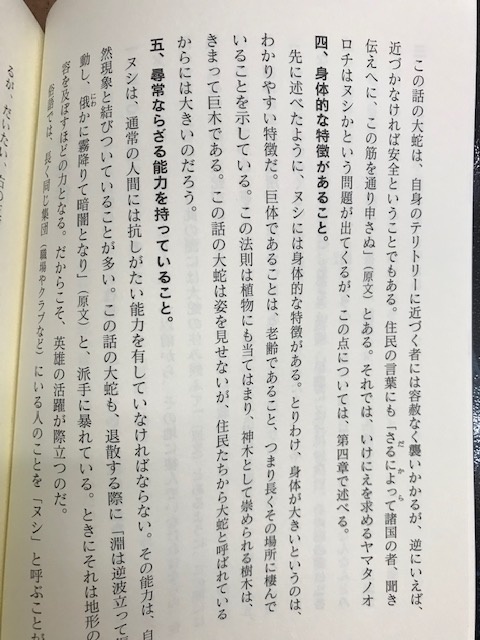 この話の大蛇は、自身のテリトリーに近づく者には容赦なく襲いかかるが、逆にいえば、
近づかなければ安全ということでもある。住民の言葉にも「さるによって諸国の者、聞き
だから
伝えへに、この筋を通り申さぬ」（原文）とある。それでは、いけにえを求めるヤマタノオ
ロチはヌシかという問題が出てくるが、この点については、第四章で述べる。
四、身体的な特徴があること。
先に述べたように、ヌシには身体的な特徴がある。とりわけ、身体が大きいというのは、
わかりやすい特徴だ。巨体であることは、老齢であること、つまり長くその場所に棲んで
いることを示している。この法則は植物にも当てはまり、神木として崇められる樹木は、
きまって巨木である。この話の大蛇は姿を見せないが、住民たちから大蛇と呼ばれている
からには大きいのだろう。
五、尋常ならざる能力を持っていること。
ヌシは、通常の人間には抗しがたい能力を有していなければならない。その能力は、自
然現象と結びついていることが多い。この話の大蛇も、退散する際に「淵は逆波立って
動し、俄かに霧降りて暗闇となり」（原文）と、派手に暴れている。ときにそれは地形の
にわ
容を及ぼすほどの力となる。だからこそ、英雄の活躍が際立つのだ。
俗語では、長く同じ集団（職場やクラブなど）にいる人のことを「ヌシ」と呼ぶことが
るが、だいたい、